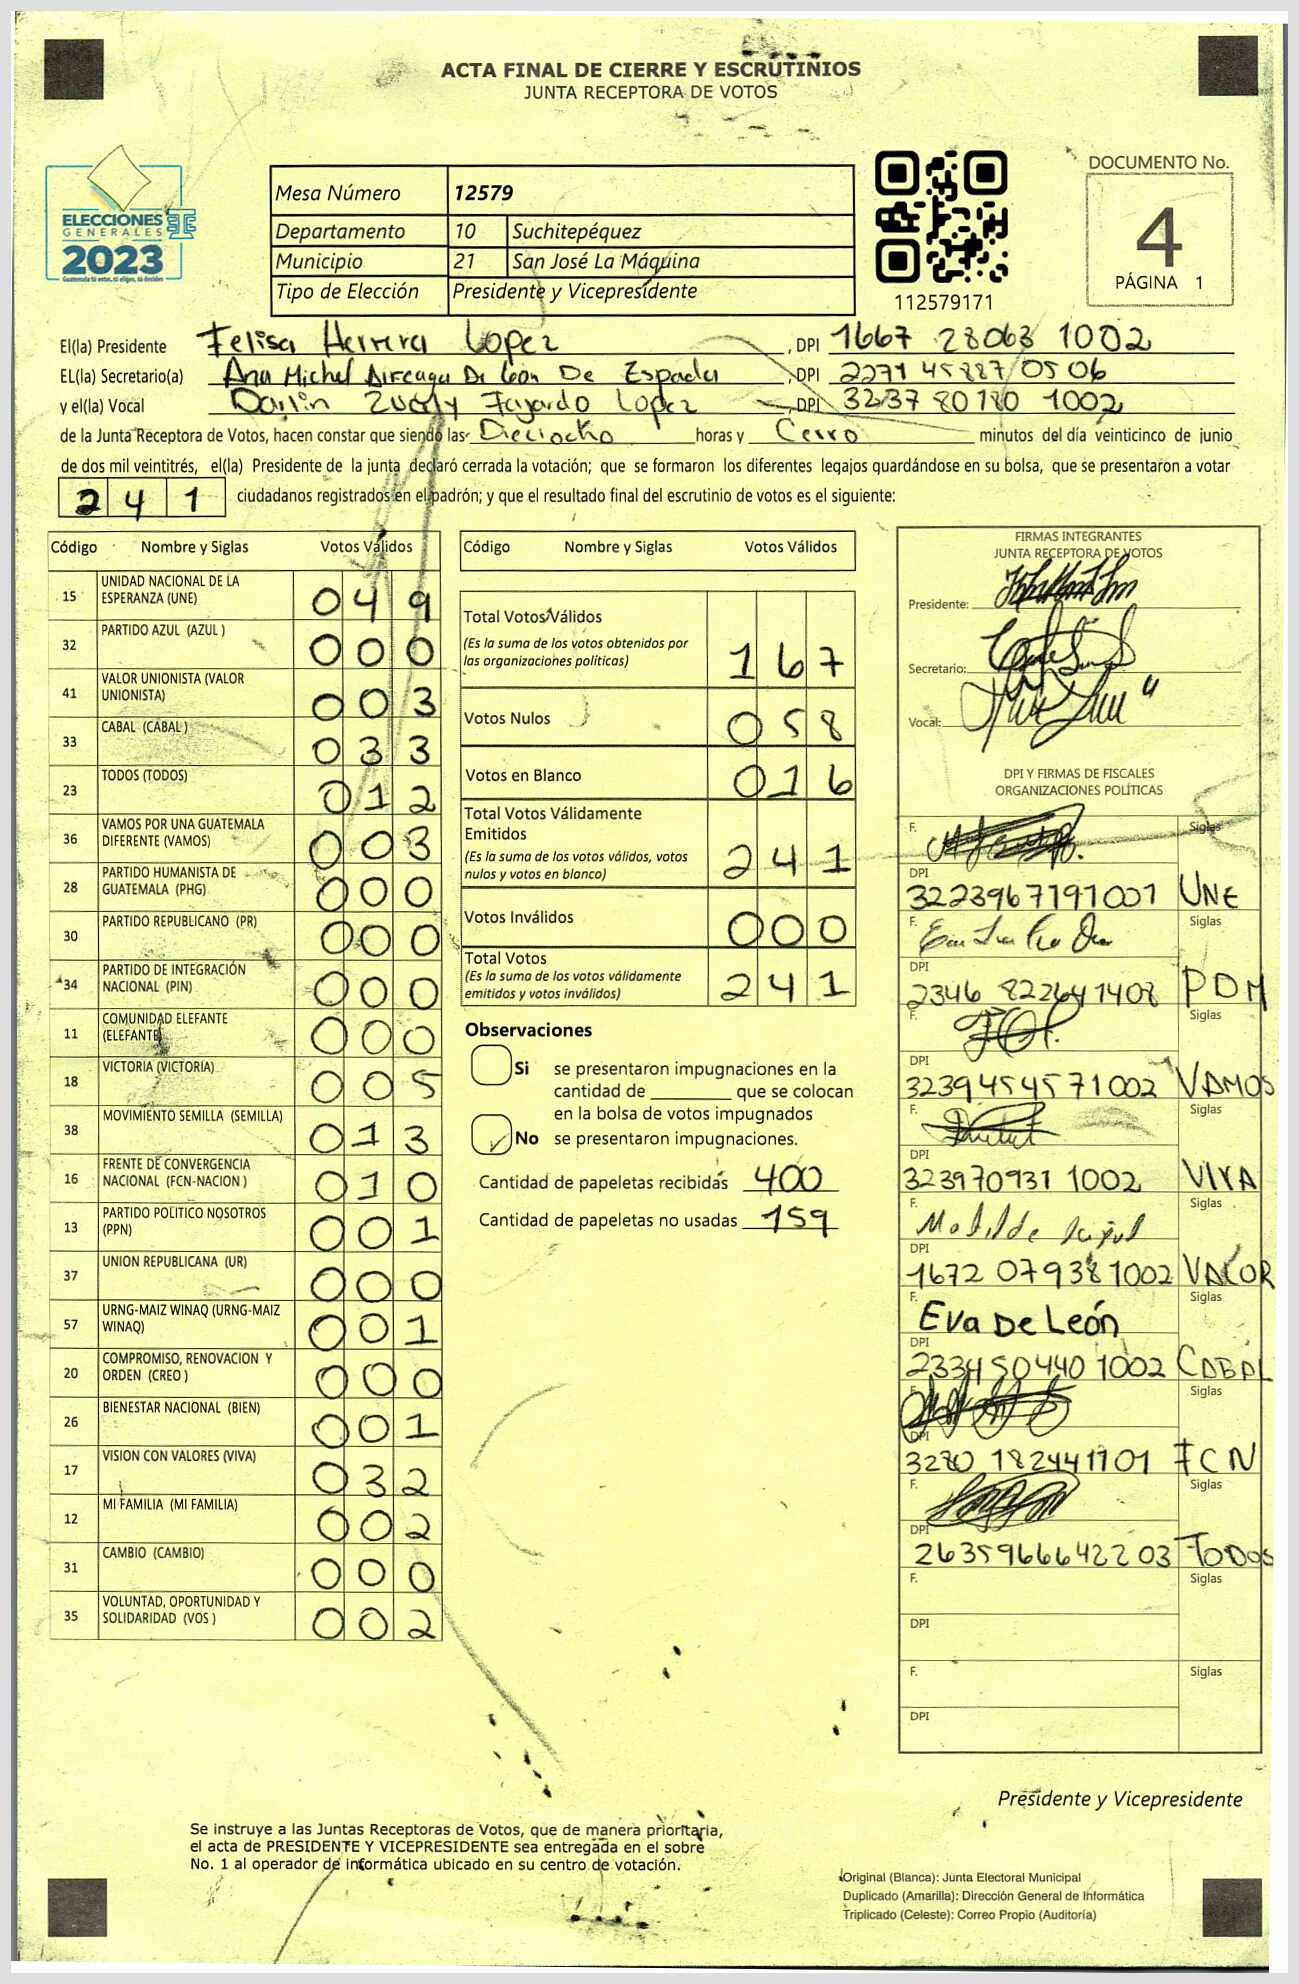 ACTA FINAL DE CIERRE Y ESCRUTINIOS
JUNTA RECEPTORA DE VOTOS
ELECCIONES
GENERALES
2023
Mesa Número 12579
Departamento 10 Suchitepéquez
Municipio 21 San José La Máquina
Tipo de Elección Presidente y Vicepresidente
112579171
DOCUMENTO No.
4
PÁGINA 1
El(la) Presidente Felisa Herrera Lopez, DPI 1667 28063 1002
EL(la) Secretario(a) Ana Michel De León De Espada, DPI 2271 45887 0506
y el(la) Vocal Darlin Zucely Fajardo Lopez, DPI 3237 80180 1002
de la Junta Receptora de Votos, hacen constar que siendo las Dieciocho horas y Cerro minutos del día veinticinco de junio
de dos mil veintitrés, el(la) Presidente de la junta declaró cerrada la votación; que se formaron los diferentes legajos guardándose en su bolsa, que se presentaron a votar
241 ciudadanos registrados en el padrón; y que el resultado final del escrutinio de votos es el siguiente:
Código Nombre y Siglas Votos Válidos
15 UNIDAD NACIONAL DE LA ESPERANZA (UNE) 049
32 PARTIDO AZUL (AZUL ) 000
41 VALOR UNIONISTA (VALOR UNIONISTA) 003
33 CABAL (CABAL ) 033
23 TODOS (TODOS) 012
36 VAMOS POR UNA GUATEMALA DIFERENTE (VAMOS) 003
28 PARTIDO HUMANISTA DE GUATEMALA (PHG) 000
30 PARTIDO REPUBLICANO (PR) 000
34 PARTIDO DE INTEGRACIÓN NACIONAL (PIN) 000
11 COMUNIDAD ELEFANTE (ELEFANTE) 000
18 VICTORIA (VICTORIA) 005
38 MOVIMIENTO SEMILLA (SEMILLA) 013
16 FRENTE DE CONVERGENCIA NACIONAL (FCN-NACION ) 010
13 PARTIDO POLITICO NOSOTROS (PPN) 001
37 UNION REPUBLICANA (UR) 000
57 URNG-MAIZ WINAQ (URNG-MAIZ WINAQ) 001
20 COMPROMISO, RENOVACION Y ORDEN (CREO ) 000
26 BIENESTAR NACIONAL (BIEN) 001
17 VISION CON VALORES (VIVA) 032
12 MI FAMILIA (MI FAMILIA) 002
31 CAMBIO (CAMBIO) 000
35 VOLUNTAD, OPORTUNIDAD Y SOLIDARIDAD (VOS ) 002
Código Nombre y Siglas Votos Válidos
Total Votos Válidos
(Es la suma de los votos obtenidos por
las organizaciones políticas) 167
Votos Nulos 058
Votos en Blanco 016
Total Votos Válidamente
Emitidos
(Es la suma de los votos válidos, votos
nulos y votos en blanco) 241
Votos Inválidos 000
Total Votos
(Es la suma de los votos válidamente
emitidos y votos inválidos) 241
Observaciones
Si se presentaron impugnaciones en la
cantidad de ________ que se colocan
en la bolsa de votos impugnados
No se presentaron impugnaciones.
Cantidad de papeletas recibidas 400
Cantidad de papeletas no usadas 159
FIRMAS INTEGRANTES
JUNTA RECEPTORA DE VOTOS
Presidente:
Secretario:
Vocal:
DPI Y FIRMAS DE FISCALES
ORGANIZACIONES POLÍTICAS
F. Siglas
DPI 3223967191001 UNE
F. Siglas
DPI 2346 822641408 PDM
F. Siglas
DPI 3239454571002 VAMOS
F. Siglas
DPI 323970931 1002 VIVA
F. Matilde Siglas
DPI 1672 079381002 VALOR
F. Eva De León Siglas
DPI 233450440 1002 CABAL
F. Siglas
DPI 3280 182441101 FCN
F. Siglas
DPI 2635966642203 TODOS
F. Siglas
DPI
F. Siglas
DPI
Presidente y Vicepresidente
Se instruye a las Juntas Receptoras de Votos, que de manera prioritaria,
el acta de PRESIDENTE Y VICEPRESIDENTE sea entregada en el sobre
No. 1 al operador de informática ubicado en su centro de votación.
Original (Blanca): Junta Electoral Municipal
Duplicado (Amarilla): Dirección General de Informática
Triplicado (Celeste): Correo Propio (Auditoría)